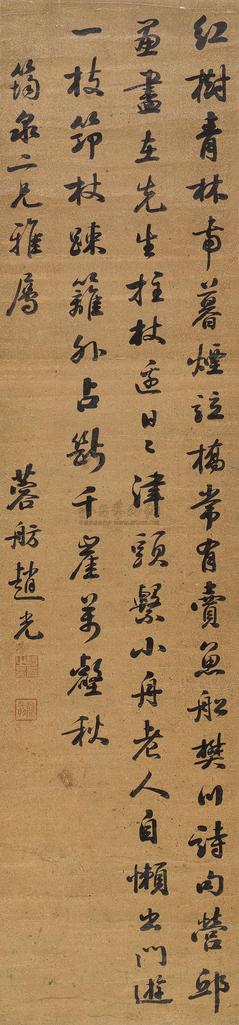 紅樹青林帶暮煙竝橋常有賣魚船樊川詩句營邱
画盡在先生拄杖邊日日津頭繫小舟老人自懶出門遊
一枝筇杖疎籬外占斷千崖萬壑秋
筠泉二兄雅屬
蓉舫趙光